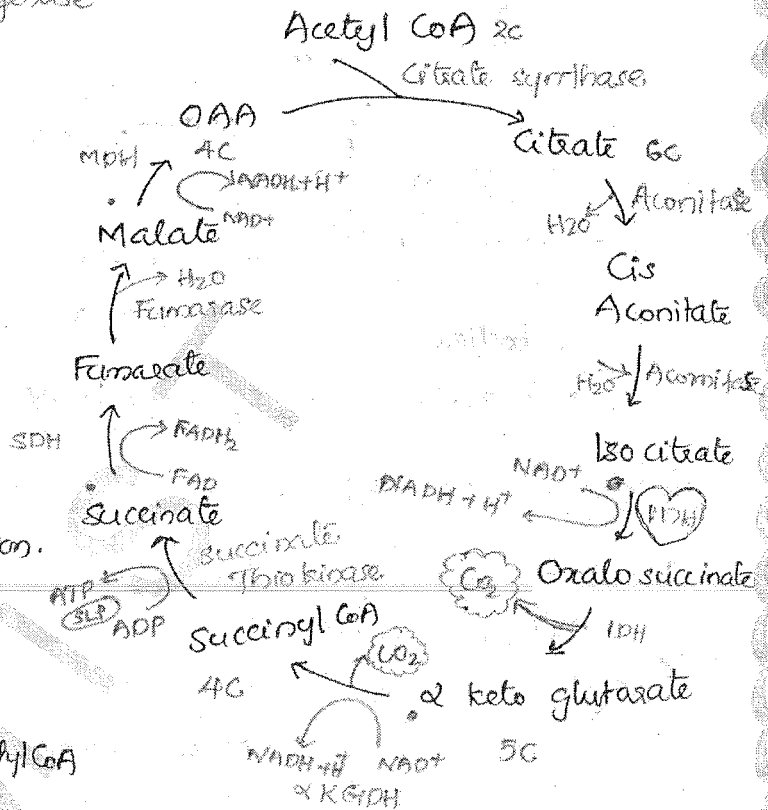 Acetyl CoA 2C
Citrate synthase
OAA
4C
Citrate 6C
MDH
NADH+H+
NAD+
Malate
H2O
Aconitase
Cis
Aconitate
H2O
Fumarase
Fumarate
H2O
Aconitase
Iso citrate
SDH
FADH2
FAD
NAD+
NADH + H+
IDH
Succinate
on.
Succinate
Thiokinase
CO2
Oxalo succinate
ATP
SLP
ADP
IDH
Succinyl CoA
4C
CO2
α keto glutarate
5C
NADH+H+
NAD+
α KGDH
hylCoA